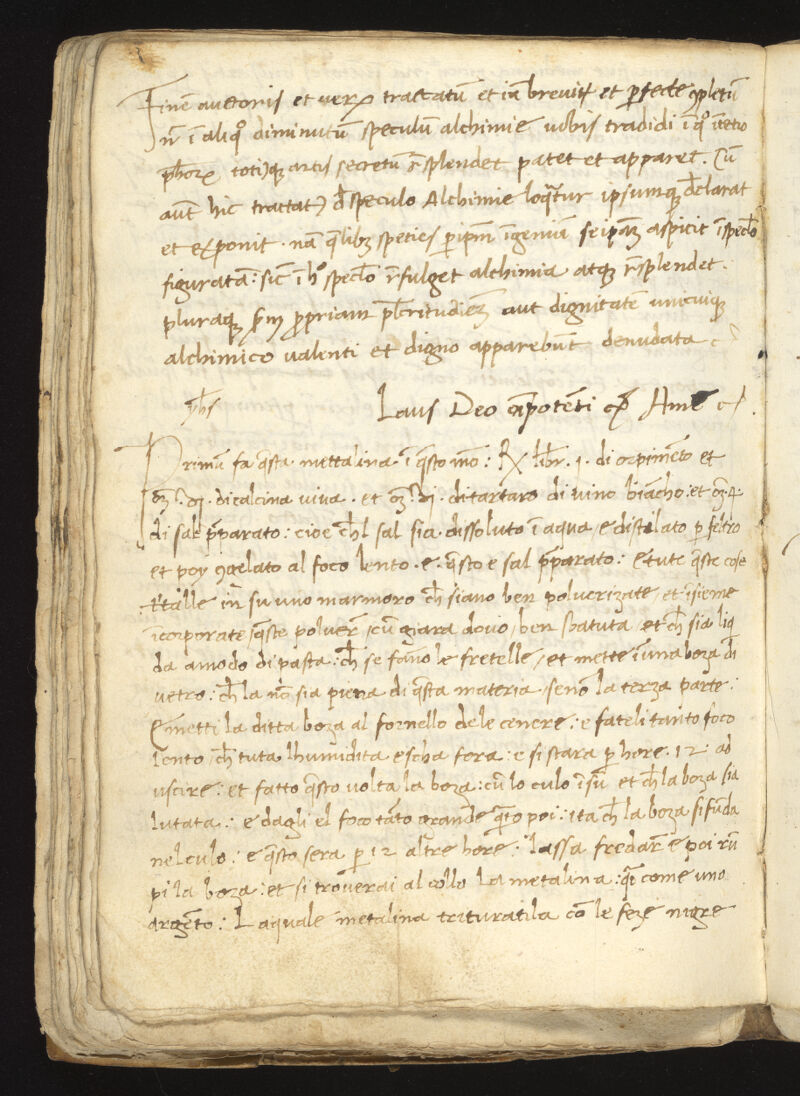 Finē auctoris et verꝝ tractatū et in breviꝶ et perfecte ꝯpletū
nō ī aliqº diminutū speculū alchimie vobis tradidi ī qº
pħorꝝ totiꝰqꝫ artis secretū r̄splendet patet et apparet. Cū
aūt hic tractatꝰ d̄ speculo Alchimie loqt̄ur ipsumqꝫ d̄clarat
et exponit. nā q̄libꝫ speties p ip̄m īgeniū seip̄aꝫ aspicit ī specl̄o
figuratā: sic ī hº specl̄o r̄fulget alchimia atqꝫ r̄splendet.
pluraqꝫ propriam pl̄critudineꝫ aut dignitatē unicuiqꝫ
alchimico valenti et digno apparebūt denudata
pħs Laus Deo oīpotēti Amē
Primū fa q̄sta mettalina ī q̄sto mō: ℞ libr. 1. di orpimēto et
oꝫ. vj. di calcina viva. et oꝫ. vj. di tartaro di vino biācho: et oꝫ. 4.
di sal p̄parato: cioe cħl sal sia dissoluto ī aqua, e distilato p feltro
et poy ꝯgelato al foco lento. e. q̄sto e sal p̄parato: E tute q̄ste cose
in su uno marmoro cħ siano ben polverizate, et īsieme
īcorporate, q̄ste polver̄, cū giara dovo, ben sbatuta, et cħ sia liq
da a modo di pasta: cħ se fāno le fretelle, et mette ī una boza di
vetro: cħ la nō sia piena di q̄sta materia, senō la terza parte:
E metti la ditta boza al fornello dele cenere: e fateli tanto foco
lento, cħ tuta lhumidita escha fora: e si stara p hore. 12. ad
uscire: et fatto q̄sto volta la boza: cū lo culo ī sū et cħ la boza sia
lutata: e dagli el foco tāto grande q̄to poi: ita cħ la boza si fūda
nel culo: e q̄sto sera p 12 altre hore: lassa fredar̄ e poi rū
pi la boza: et si troverai al collo la metalina: q̄i come uno
argēto: Laquale metalina trituratila cō le feze nigre